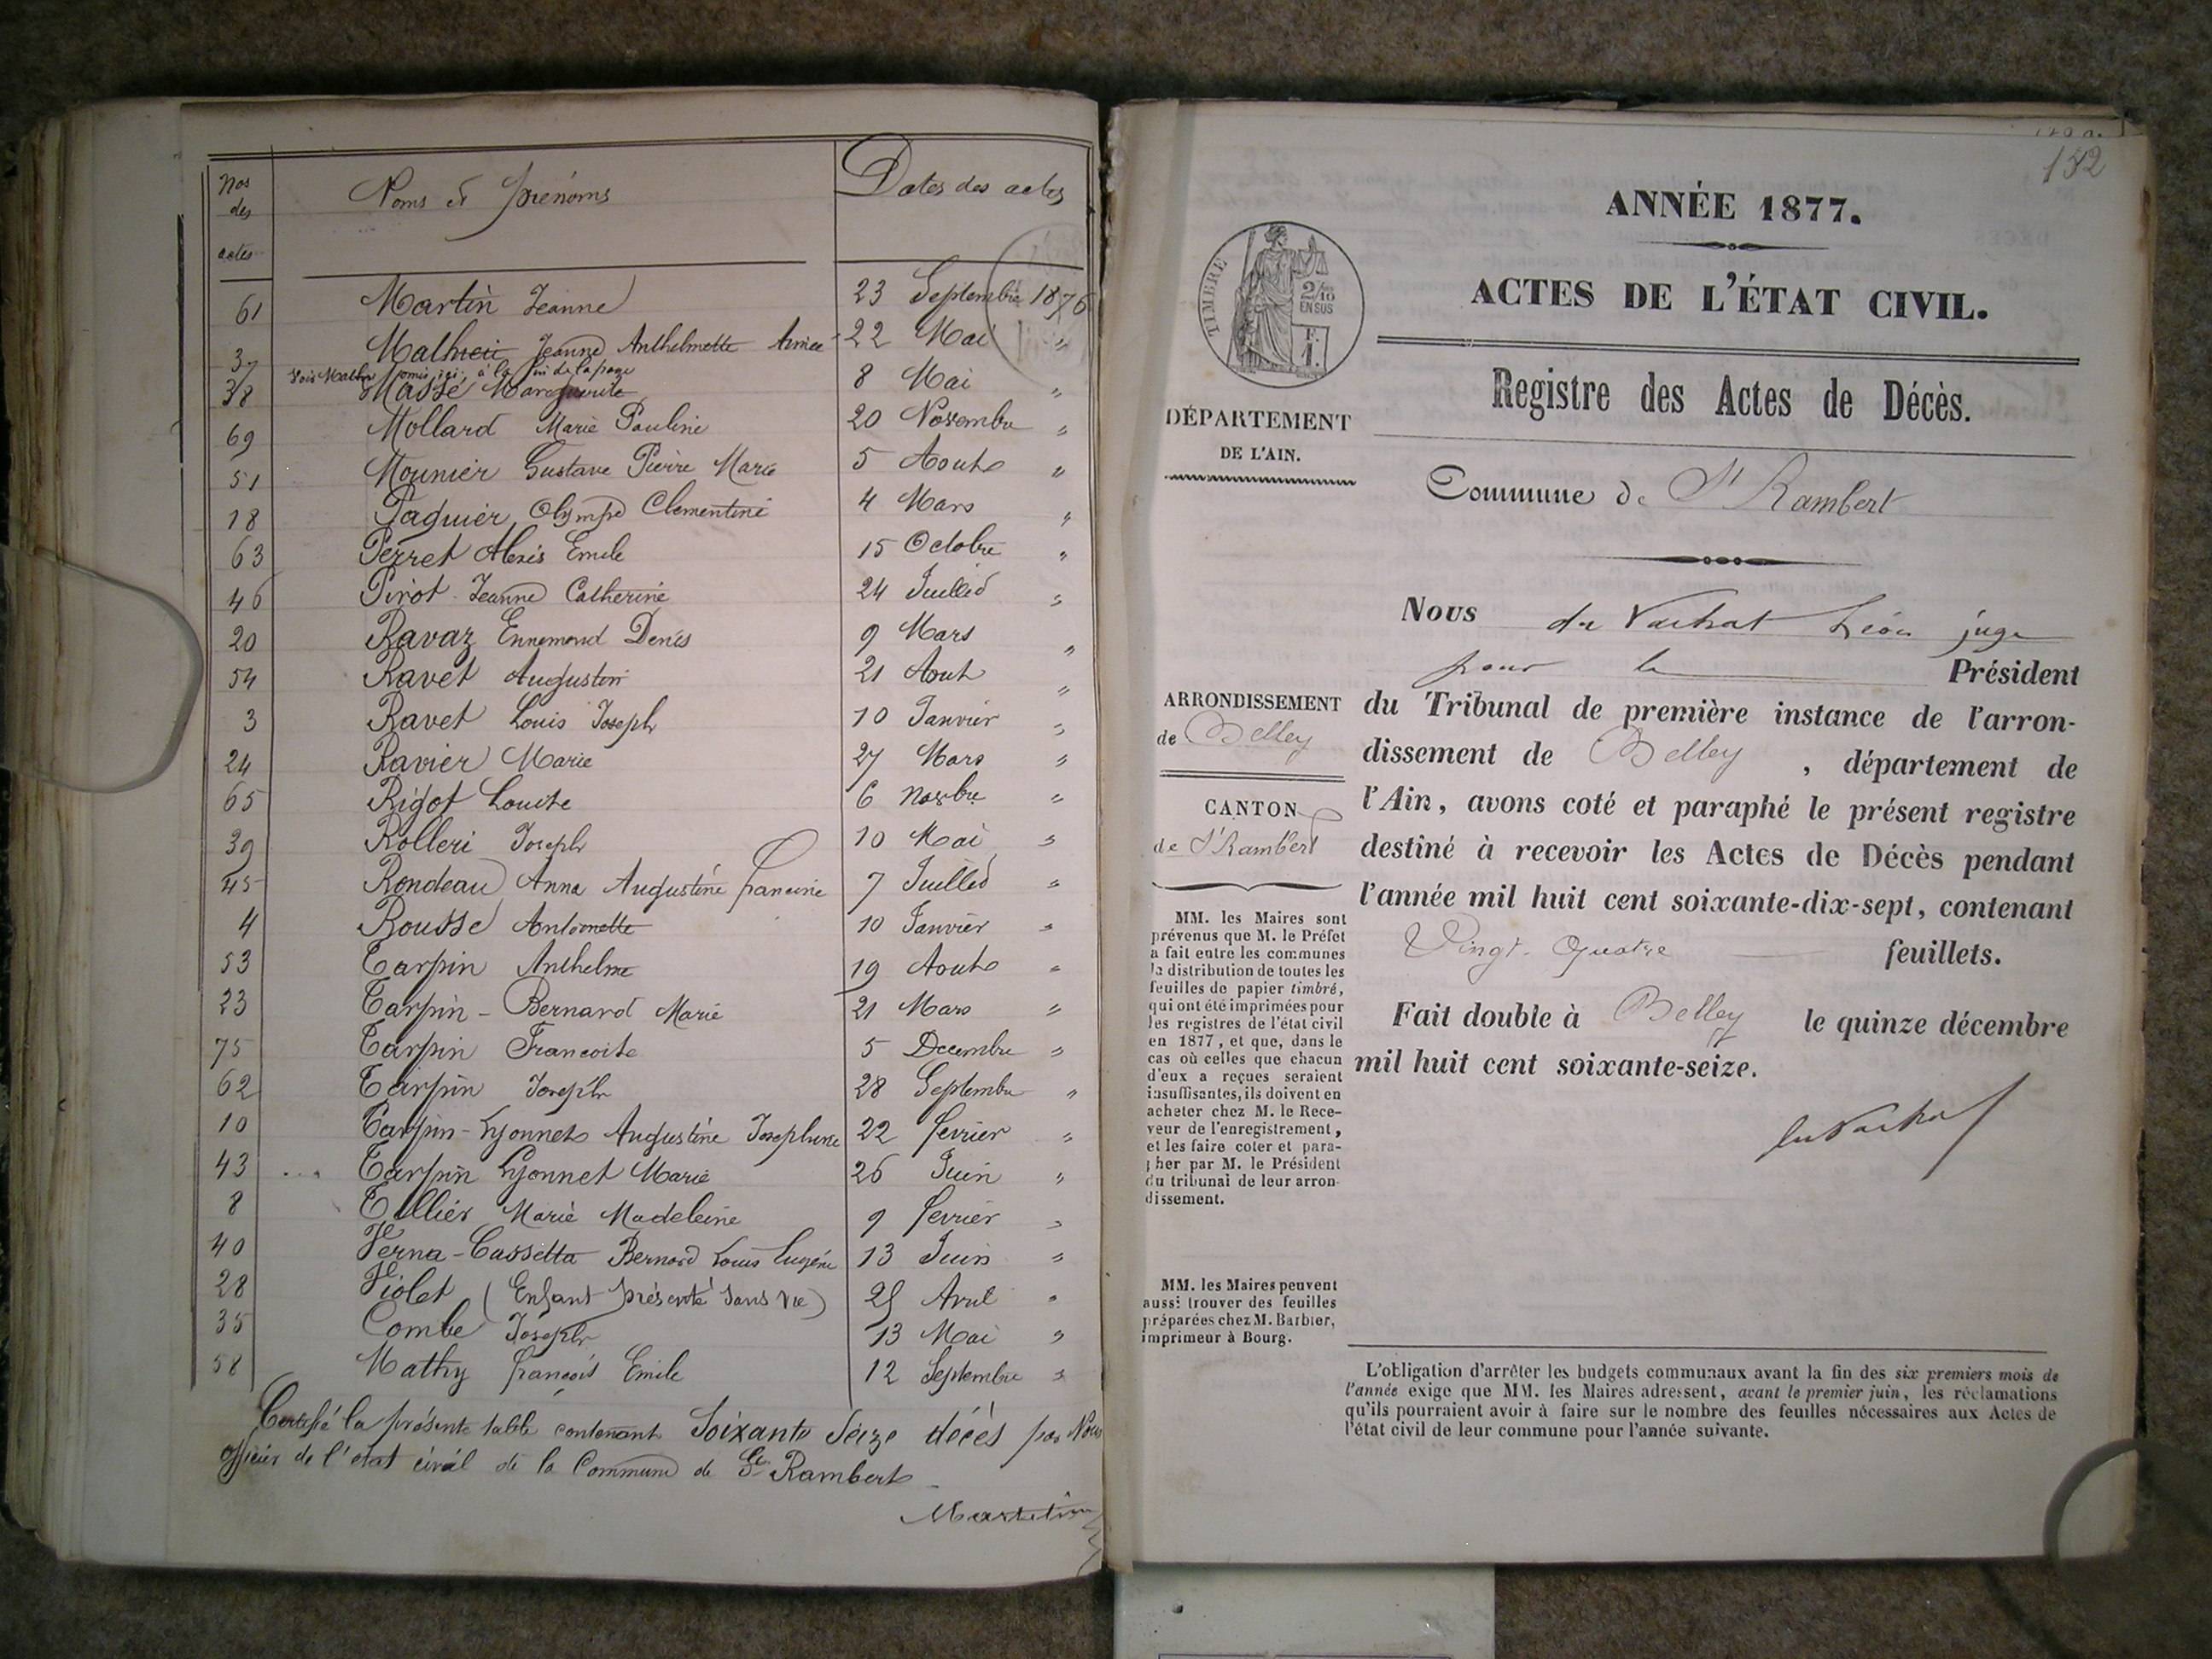 Nos des actes
Noms et prénoms
Dates des actes
61 Martin Jeanne 23 Septembre 1876
37 Mathieu Jeanne Anthelmette Aimée 22 Mai "
Vois Mathy omis ici, à la fin de la page
38 Massé Marguerite 8 Mai "
69 Mollard Marie Pauline 20 Novembre "
51 Mounier Gustave Pierre Marie 5 Aout "
18 Paquier Olympe Clementine 4 Mars "
63 Perret Alexis Emile 15 Octobre "
46 Pirot Jeanne Catherine 24 Juillet "
20 Ravaz Ennemond Denis 9 Mars "
54 Ravet Augustin 21 Aout "
3 Ravet Louis Joseph 10 Janvier "
24 Ravier Marie 27 Mars "
65 Rigot Louise 6 Novbre "
39 Rolleri Joseph 10 Mai "
45 Rondeau Anna Augustine francine 7 Juillet "
4 Rousse Antoinette 10 Janvier "
53 Tarpin Anthelme 19 Aout "
23 Tarpin - Bernard Marie 21 Mars "
75 Tarpin Francoise 5 Decembre "
62 Tarpin Joseph 28 Septembre "
10 Tarpin - Lyonnet Augustine Josephine 22 fevrier "
43 ... Tarpin Lyonnet Marie 26 Juin "
8 Tillier Marie Madeleine 9 fevrier "
40 Verna - Cassetta Bernard Louis Eugène 13 Juin "
28 Violet (Enfant présenté sans vie) 25 Avril "
35 Combe Joseph 13 Mai "
58 Mathy françois Emile 12 Septembre "
Certifié la présente table contenant Soixante Seize décès par Nous
officier de l'état civil de la Commune de St Rambert
132
ANNÉE 1877.
ACTES DE L'ÉTAT CIVIL.
TIMBRE
2/10
EN SUS
F.
1.
Registre des Actes de Décès.
DÉPARTEMENT
DE L'AIN.
Commune de St Rambert
Nous du Vachat Léon juge
pour le Président
ARRONDISSEMENT
de Belley
du Tribunal de première instance de l'arron-
dissement de Belley , département de
l'Ain, avons coté et paraphé le présent registre
destiné à recevoir les Actes de Décès pendant
l'année mil huit cent soixante-dix-sept, contenant
Vingt-Quatre feuillets.
Fait double à Belley le quinze décembre
mil huit cent soixante-seize.
du Vachat
CANTON
de St Rambert
MM. les Maires sont
prévenus que M. le Préfet
a fait entre les communes
la distribution de toutes les
feuilles de papier timbré,
qui ont été imprimées pour
les registres de l'état civil
en 1877, et que, dans le
cas où celles que chacun
d'eux a reçues seraient
insuffisantes, ils doivent en
acheter chez M. le Rece-
veur de l'enregistrement,
et les faire coter et para-
pher par M. le Président
du tribunal de leur arron-
dissement.
MM. les Maires peuvent
aussi trouver des feuilles
préparées chez M. Barbier,
imprimeur à Bourg.
L'obligation d'arrêter les budgets communaux avant la fin des six premiers mois de
l'année exige que MM. les Maires adressent, avant le premier juin, les réclamations
qu'ils pourraient avoir à faire sur le nombre des feuilles nécessaires aux Actes de
l'état civil de leur commune pour l'année suivante.